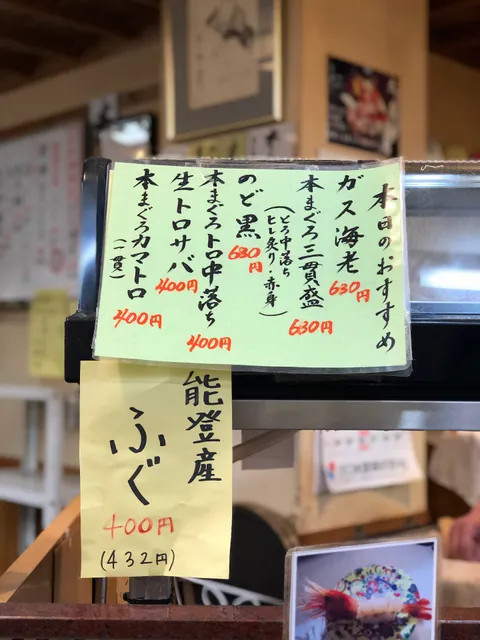 本日のおすすめ
ガス海老
630円
本まぐろ三貫盛
(とろ中落ち
ヒレ炙り・赤身)
630円
のど黒
630円
本まぐろトロ中落ち
400円
生トロサバ
400円
本まぐろカマトロ
(一貫)
400円
能登産
ふぐ
400円
(432円)